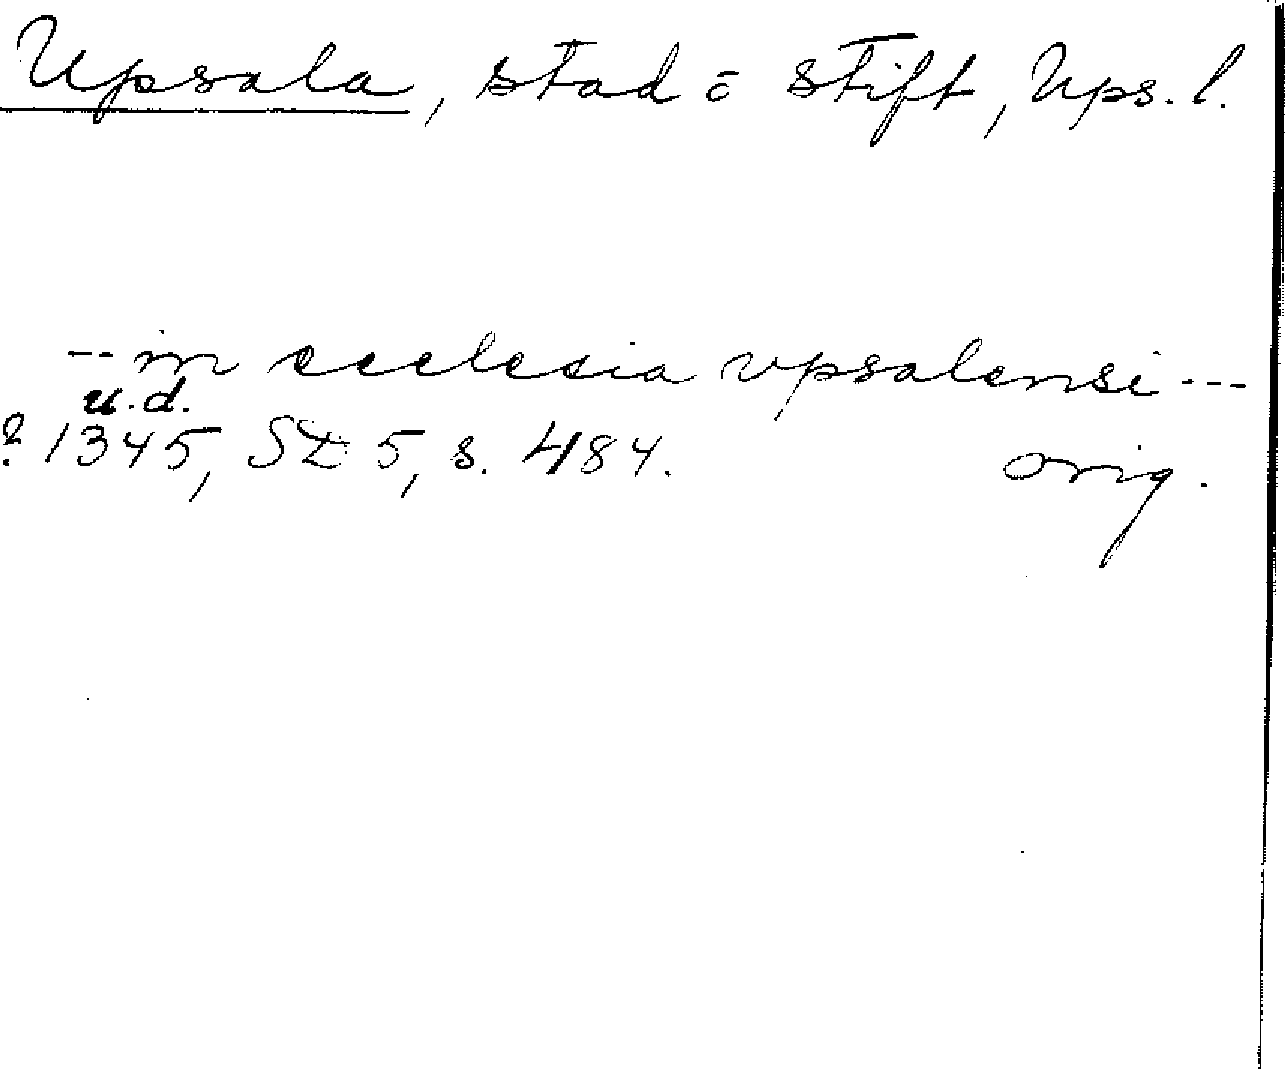 Upsala, stad o stift, Ups. l.
-- in ecclesia vpsalensi ---
u. d.
? 1345, SD 5, s. 484. orig.